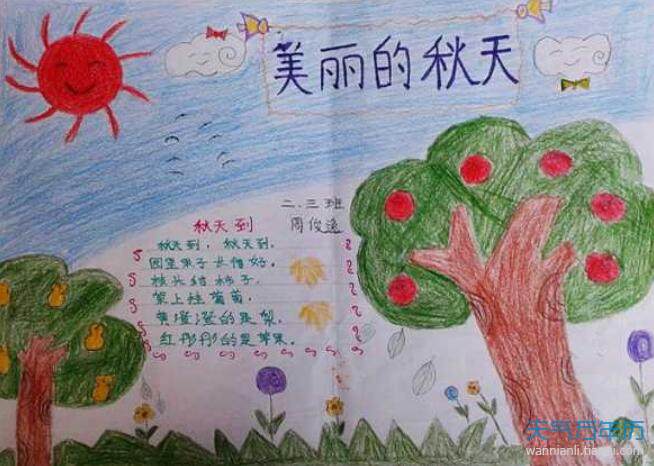 美丽的秋天
二.三班
周俊逸
秋天到
秋天到，秋天到，
园里果子长得好，
枝头结柿子，
架上挂葡萄，
黄澄澄的是梨，
红彤彤的是苹果。
天气万年历
wannianli.tianqi.com